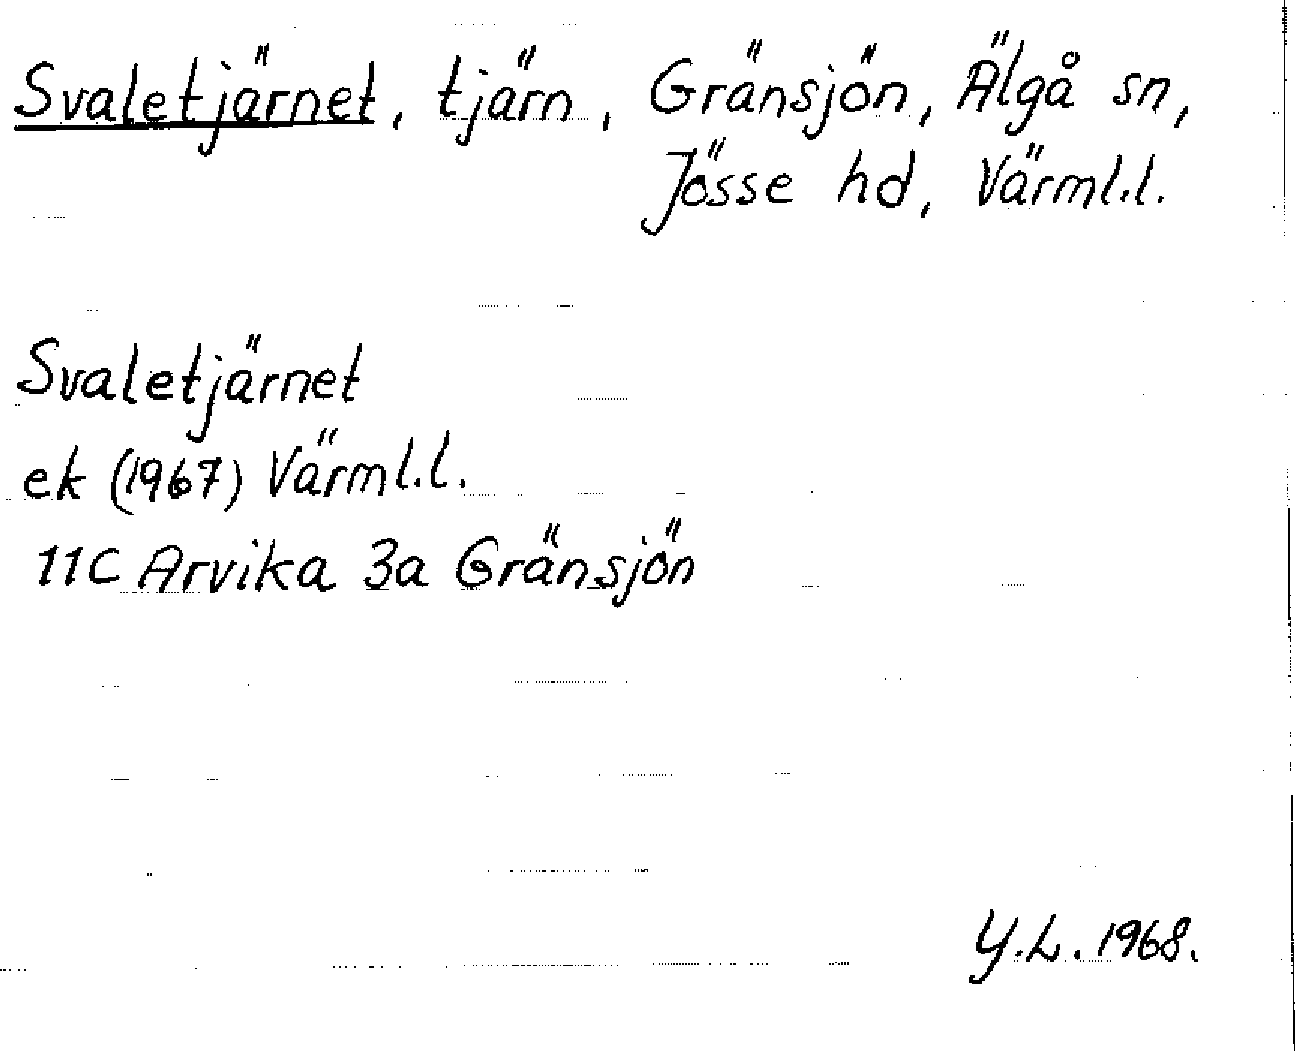 Svaletjärnet, tjärn, Gränsjön, Älgå sn,
Jösse hd, Värml.l.
Svaletjärnet
ek (1967) Värml.l.
11C Arvika 3a Gränsjön
Y.L. 1968.